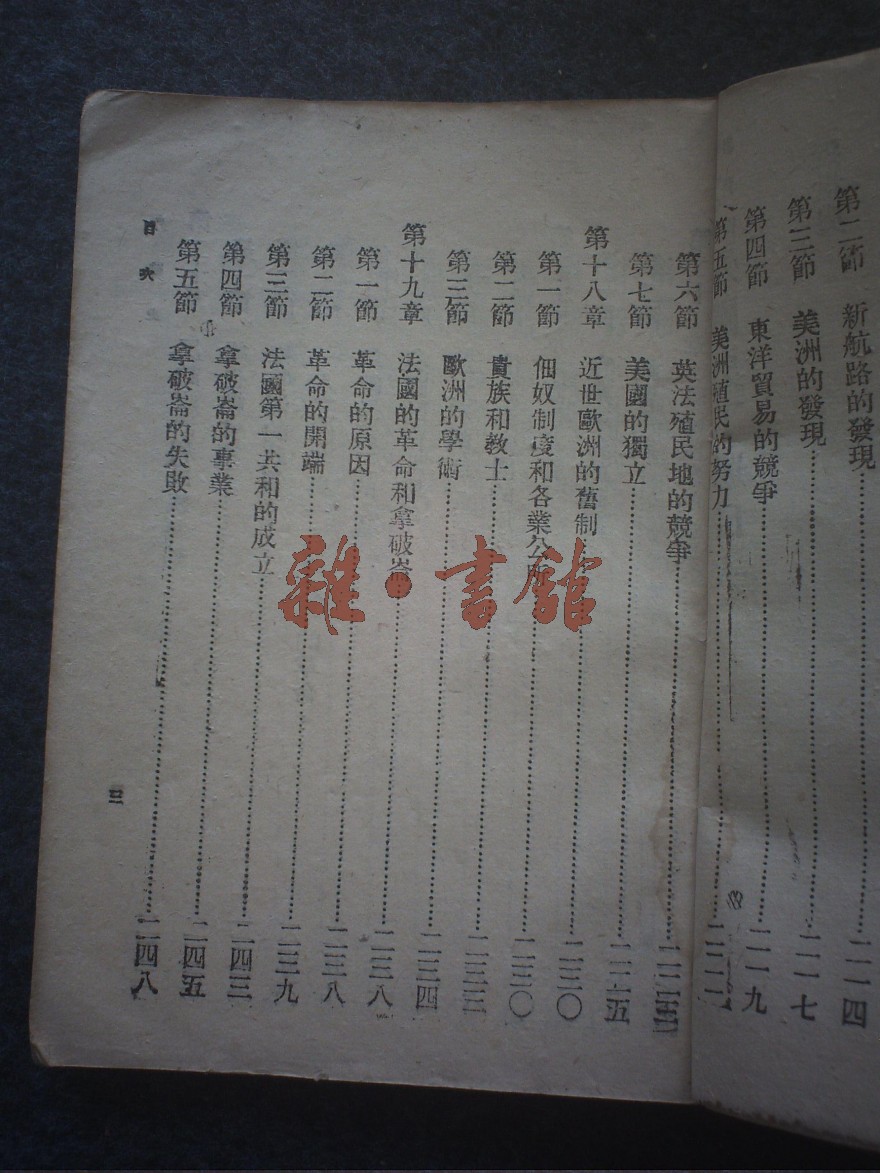 第二節 新航路的發現……二一四
第三節 美洲的發現……二一七
第四節 東洋貿易的競爭……二一九
第五節 美洲殖民的努力……二二一
第六節 英法殖民地的競爭……二二三
第七節 美國的獨立……二二五
第十八章 近世歐洲的舊制……二三〇
第一節 佃奴制度和各業公所……二三〇
第二節 貴族和教士……二三三
第三節 歐洲的學術……二三四
第十九章 法國的革命和拿破崙……二三八
第一節 革命的原因……二三八
第二節 革命的開端……二三九
第三節 法國第一共和的成立……二四三
第四節 拿破崙的事業……二四五
第五節 拿破崙的失敗……二四八
目次
三
雜·書館